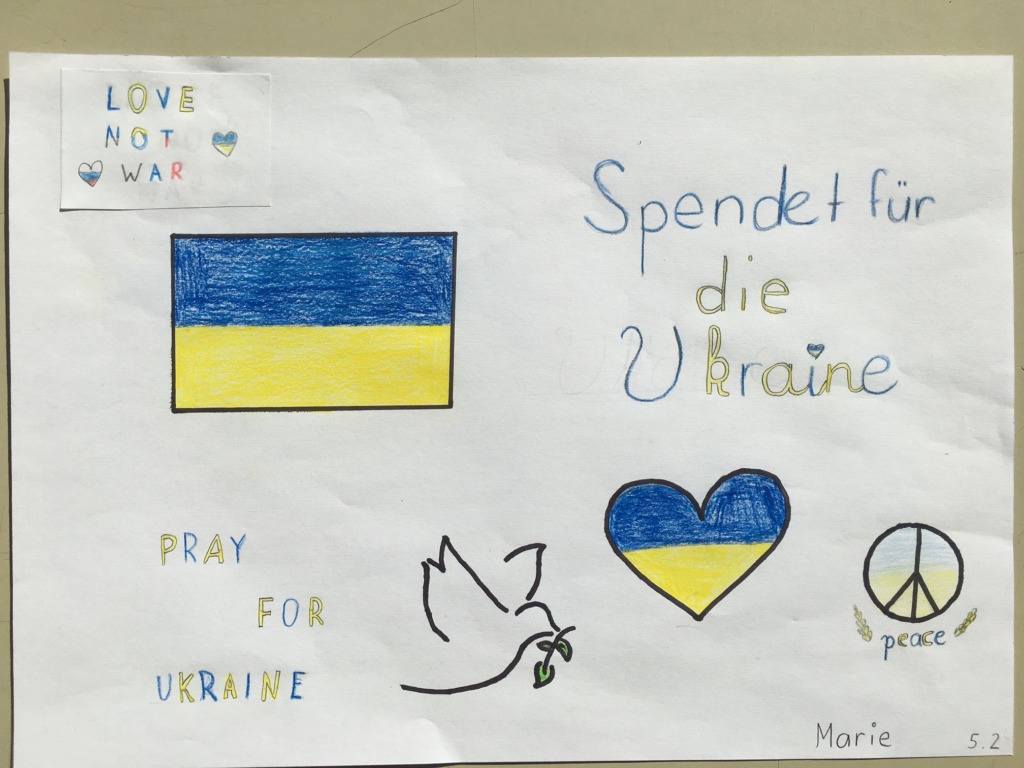 LOVE
NOT
WAR
Spendet für
die
Ukraine
PRAY
FOR
UKRAINE
peace
Marie 5.2